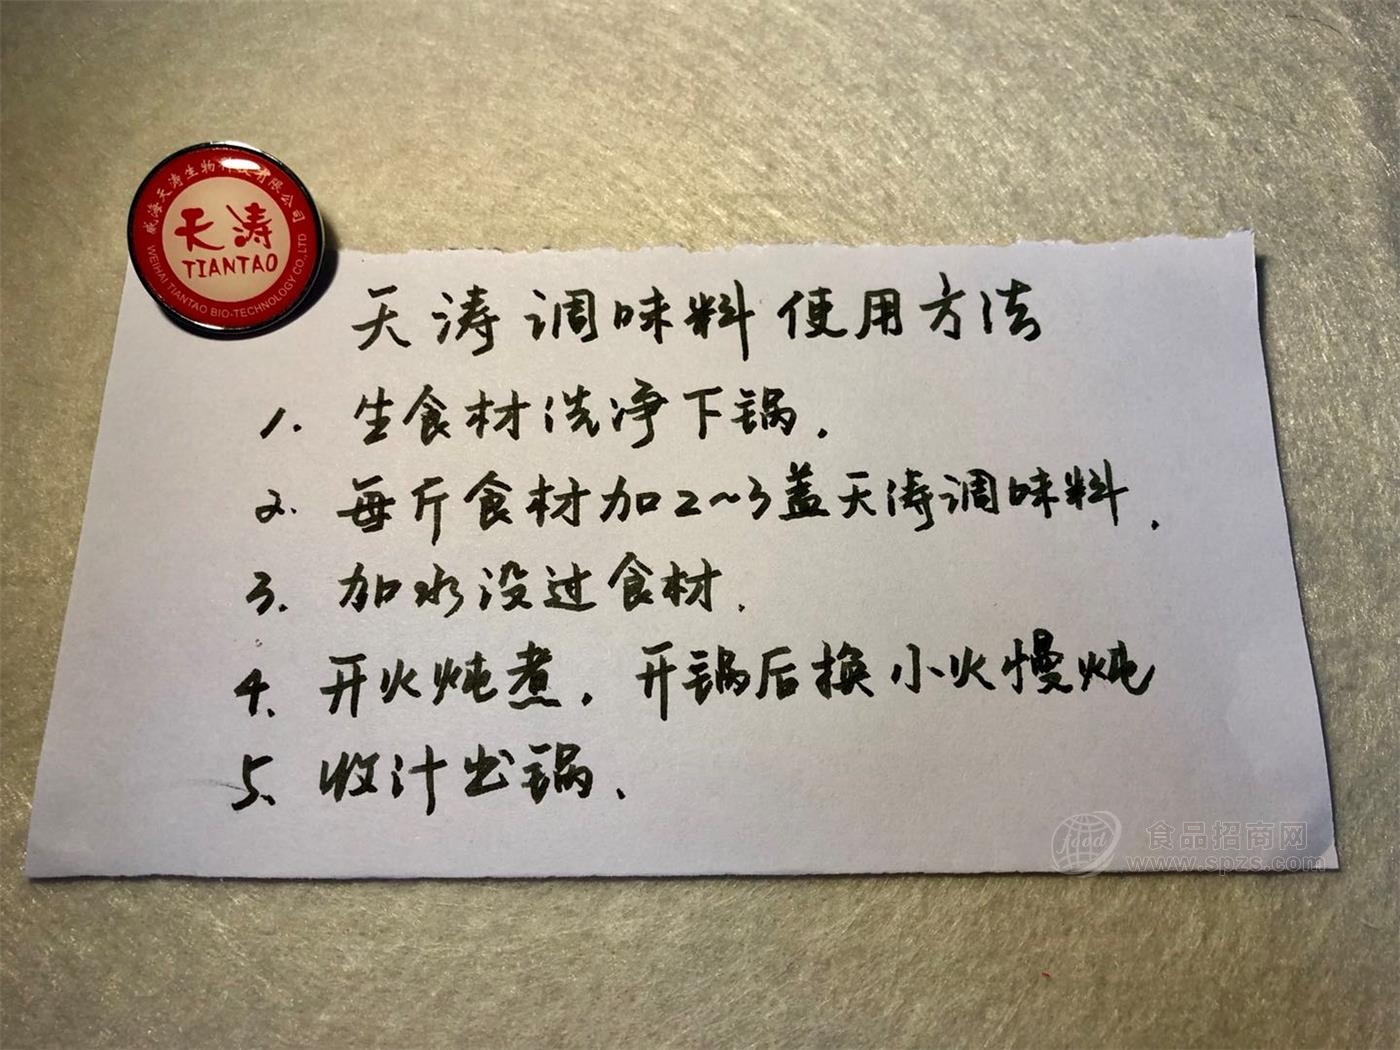 威海天涛生物科技有限公司
天涛
TIANTAO
WEIHAI TIANTAO BIO-TECHNOLOGY CO.,LTD
天涛调味料使用方法
1. 生食材洗净下锅.
2. 每斤食材加2~3盖天涛调味料.
3. 加水没过食材.
4. 开火炖煮. 开锅后换小火慢炖
5. 收汁出锅.
食品招商网
www.spzs.com